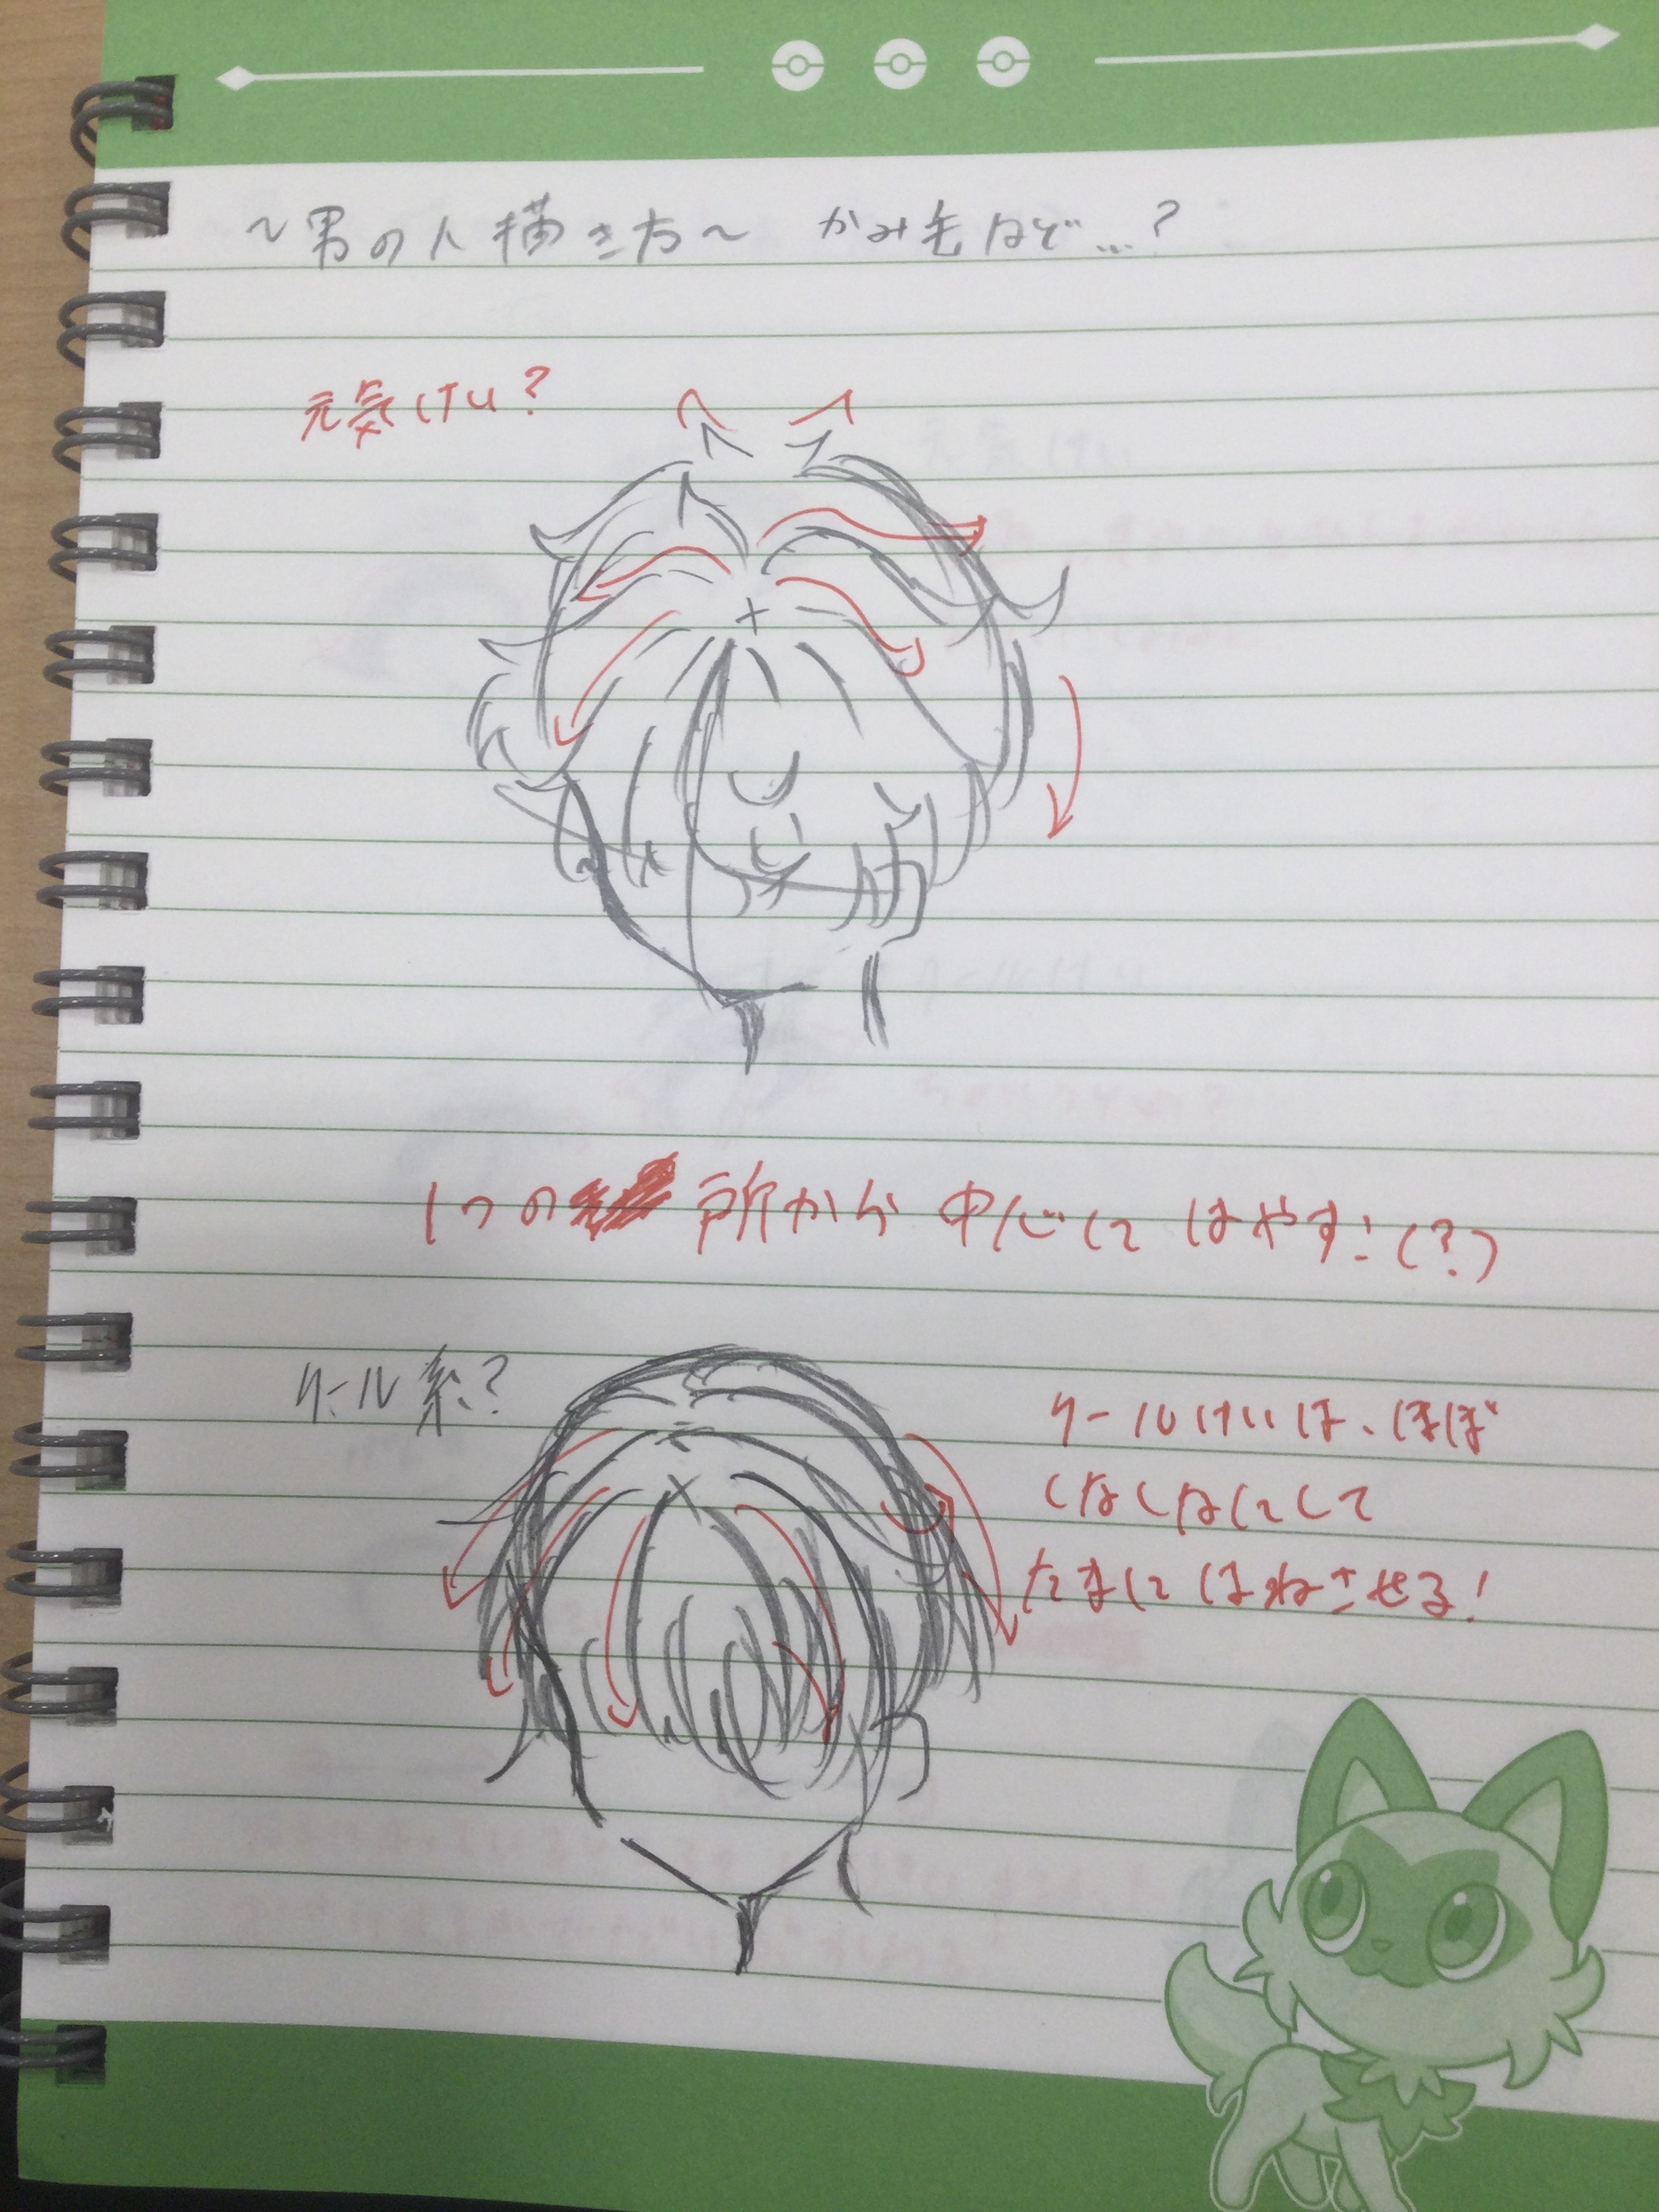 ～男の人描き方～ かみ毛など…?
元気けい?
1つの 所から 中心に はやす!(?)
クール系?
クールけいは、ほぼ
しなしなにして
たまに はねさせる!